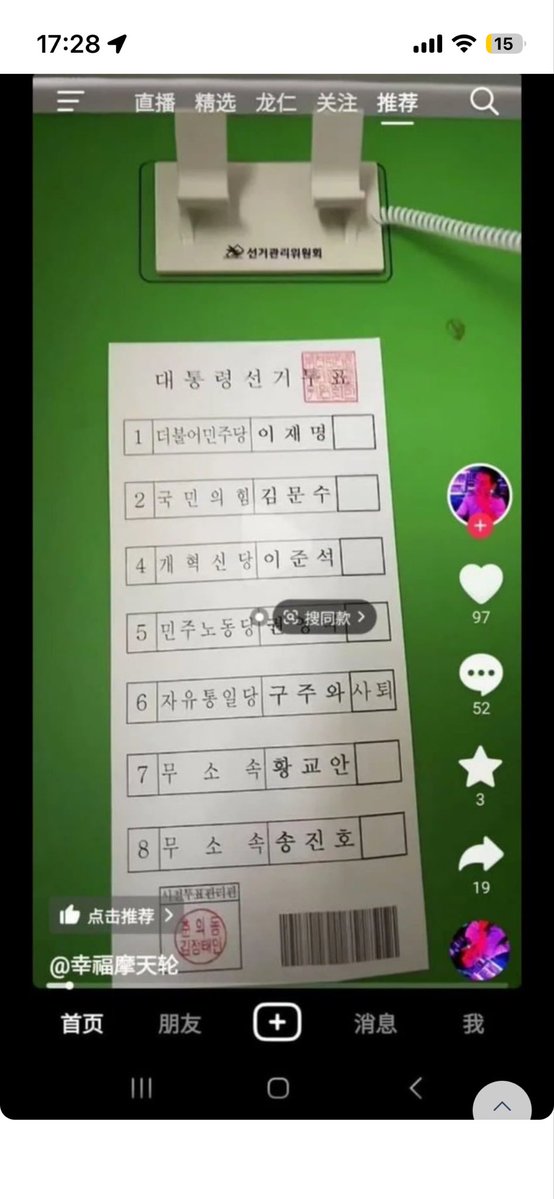 17:28
15
直播 精选 龙仁 关注 推荐
선거관리위원회
대통령선거투표
1 더불어민주당 이재명
2 국민의힘 김문수
4 개혁신당 이준석
搜同款
5 민주노동당 권
6 자유통일당 구주와 사퇴
7 무소속 황교안
8 무소속 송진호
97
52
3
19
사전투표관리관
点击推荐
@幸福摩天轮
首页 朋友 消息 我